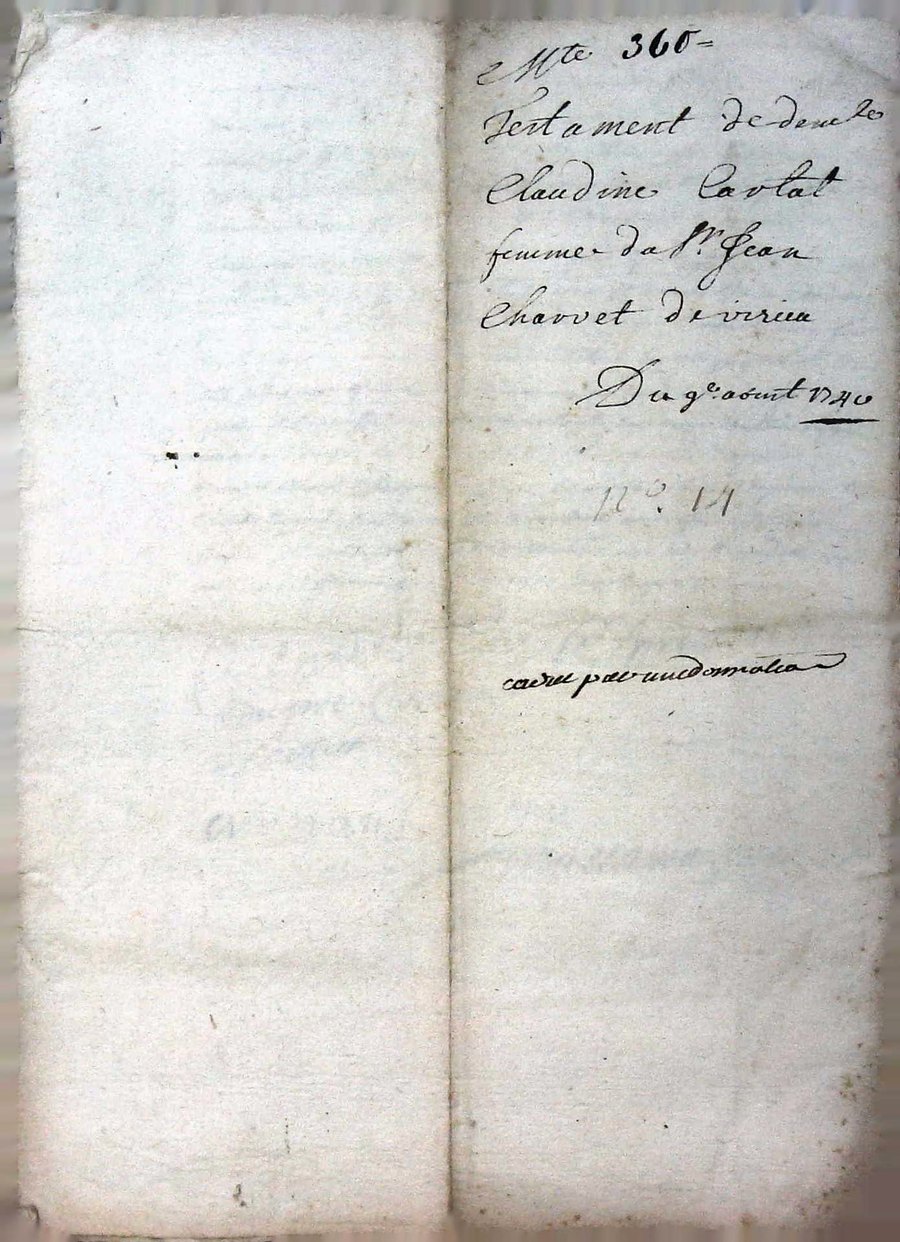 Mte 360=
Testament de demelle
Claudine Cartal
femme du Sr Jean
Charvet de virieu
Du 9e. aoust 1740
N°. 14
par une donnation